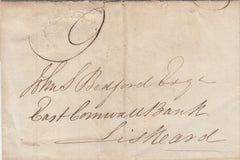 John S Bedford Esqr
East Cornwall Bank
Liskeard